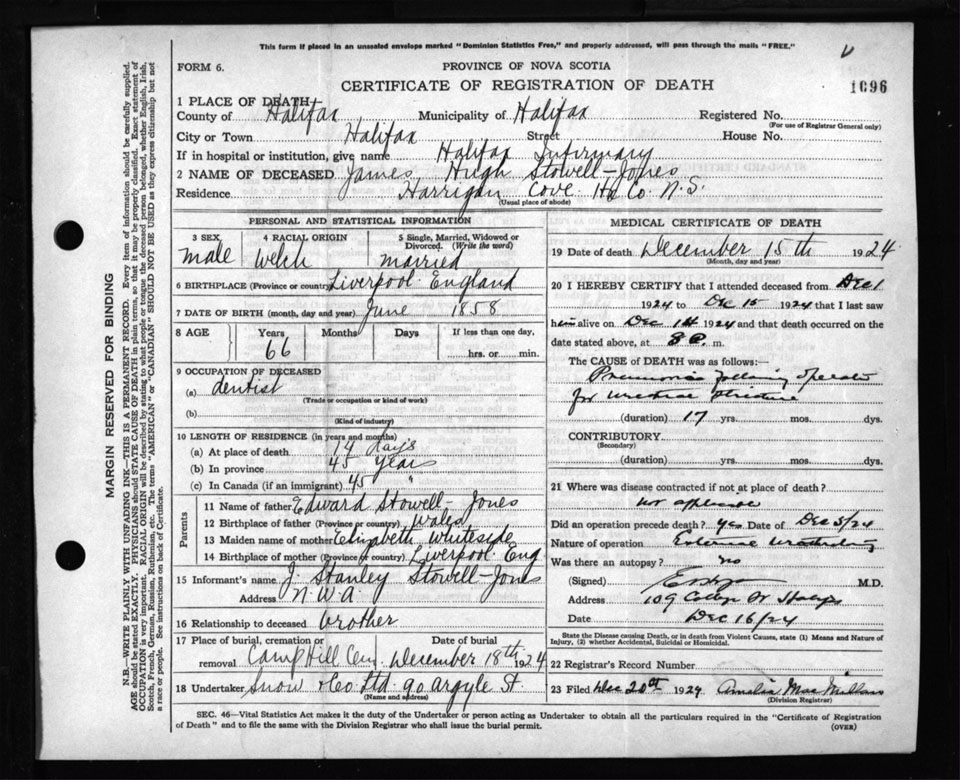 This form if placed in an unsealed envelope marked "Dominion Statistics Free," and properly addressed, will pass through the mails "FREE."
FORM 6.
PROVINCE OF NOVA SCOTIA
CERTIFICATE OF REGISTRATION OF DEATH
1096
1 PLACE OF DEATH
County of Halifax Municipality of Halifax Registered No.
(For use of Registrar General only)
City or Town Halifax Street House No.
If in hospital or institution, give name Halifax Infirmary
2 NAME OF DECEASED James Hugh Stowell-Jones
Residence Harrigan Cove Hx Co. N.S.
(Usual place of abode)
PERSONAL AND STATISTICAL INFORMATION
3 SEX
male
4 RACIAL ORIGIN
Welch
5 Single, Married, Widowed or Divorced. (Write the word)
married
6 BIRTHPLACE (Province or country) Liverpool England
7 DATE OF BIRTH (month, day and year) June 1858
8 AGE Years Months Days If less than one day,
66 hrs. or min.
9 OCCUPATION OF DECEASED
(a) dentist
(Trade or occupation or kind of work)
(b)
(Kind of industry)
10 LENGTH OF RESIDENCE (in years and months)
(a) At place of death 14 days
(b) In province 45 years
(c) In Canada (if an immigrant) 45 "
Parents
11 Name of father Edward Stowell-Jones
12 Birthplace of father (Province or country) Wales
13 Maiden name of mother Elizabeth Whiteside
14 Birthplace of mother (Province or country) Liverpool Eng
15 Informant's name J. Stanley Stowell-Jones
Address N.W.A.
16 Relationship to deceased brother
17 Place of burial, cremation or removal Camp Hill Cem
Date of burial
December 18th 1924
18 Undertaker Snow & Co Ltd. 90 Argyle St.
(Name and address)
MEDICAL CERTIFICATE OF DEATH
19 Date of death December 15th 1924
(Month, day and year)
20 I HEREBY CERTIFY that I attended deceased from Dec 1
1924 to Dec 15 1924 that I last saw
him alive on Dec 14 1924 and that death occurred on the
date stated above, at 8 P. m.
The CAUSE of DEATH was as follows:—
Pneumonia following operation
for urethral stricture
(duration) 17 yrs. mos. dys.
CONTRIBUTORY
(Secondary)
(duration) yrs. mos. dys.
21 Where was disease contracted if not at place of death?
not applicable
Did an operation precede death? yes Date of Dec 5/24
Nature of operation External
Was there an autopsy? no
(Signed) M.D.
Address 109 College St Halifax
Date Dec 16/24
State the Disease causing Death, or in death from Violent Causes, state (1) Means and Nature of
Injury, (2) whether Accidental, Suicidal or Homicidal.
22 Registrar's Record Number
23 Filed Dec 20th 1924 Amelia MacMillan
(Division Registrar)
SEC. 46—Vital Statistics Act makes it the duty of the Undertaker or person acting as Undertaker to obtain all the particulars required in the "Certificate of Registration
of Death" and to file the same with the Division Registrar who shall issue the burial permit.
(OVER)
MARGIN RESERVED FOR BINDING
N.B.—WRITE PLAINLY WITH UNFADING INK—THIS IS A PERMANENT RECORD. Every item of information should be carefully supplied.
AGE should be stated EXACTLY. PHYSICIANS should STATE CAUSE OF DEATH in plain terms, so that it may be properly classified. Exact statement of
OCCUPATION is very important. RACIAL ORIGIN will be described by stating to what people or tongue the deceased person belonged, whether English, Irish,
Scotch, French, German, Russian, Ruthenian, etc. The terms "AMERICAN" or "CANADIAN" SHOULD NOT BE USED as they express citizenship but not
a race or people. See instructions on back of Certificate.